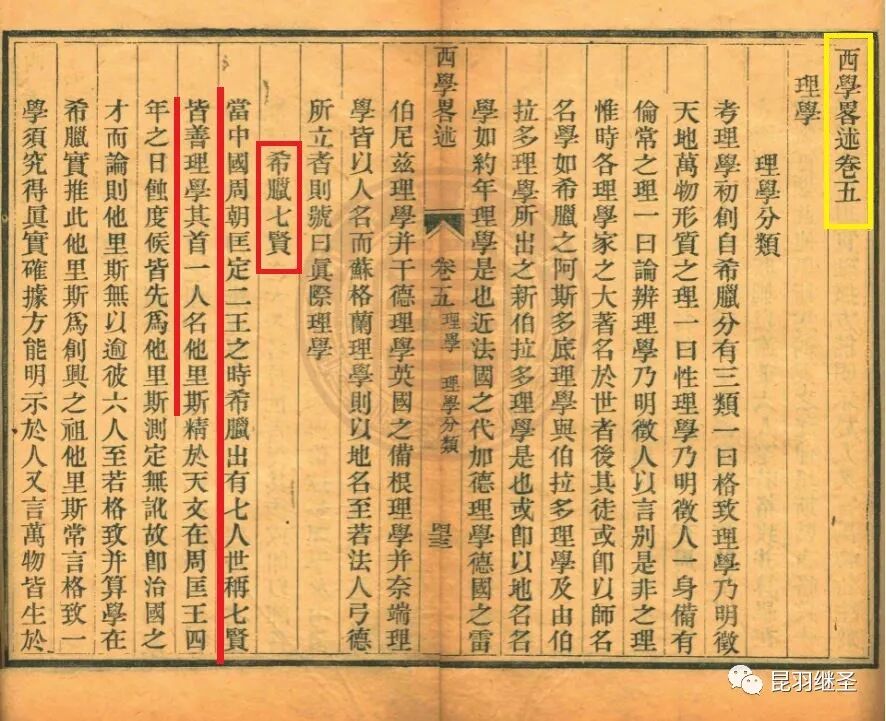 西學畧述卷五
理學
理學分類
考理學初創自希臘分有三類一曰格致理學乃明徵
天地萬物形質之理一曰性理學乃明徵人一身備有
倫常之理一曰論辨理學乃明徵人以言别是非之理
惟時各理學家之大著名於世者後其徒或卽以師名
名學如希臘之阿斯多底理學與伯拉多理學及由伯
拉多理學所出之新伯拉多理學是也或卽以地名名
學如約年理學是也近法國之代加德理學德國之雷
西學畧述
卷五
理學
理學分類
四三
伯尼兹理學并干德理學英國之備根理學并奈端理
學皆以人名而蘇格蘭理學則以地名至若法人弓德
所立者則號曰眞際理學
希臘七賢
當中國周朝匡定二王之時希臘出有七人世稱七賢
皆善理學其首一人名他里斯精於天文在周匡王四
年之日蝕度候皆先爲他里斯測定無訛故卽治國之
才而論則他里斯無以逾彼六人至若格致并算學在
希臘實推此他里斯爲創興之祖他里斯常言格致一
學須究得眞實確據方能明示於人又言萬物皆生於
昆羽继圣